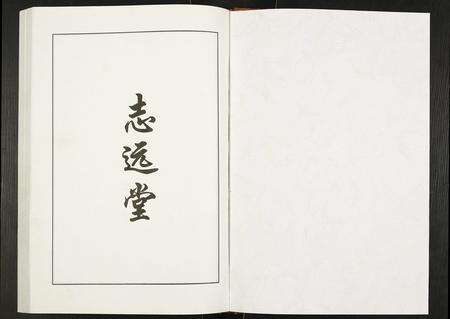 志远堂